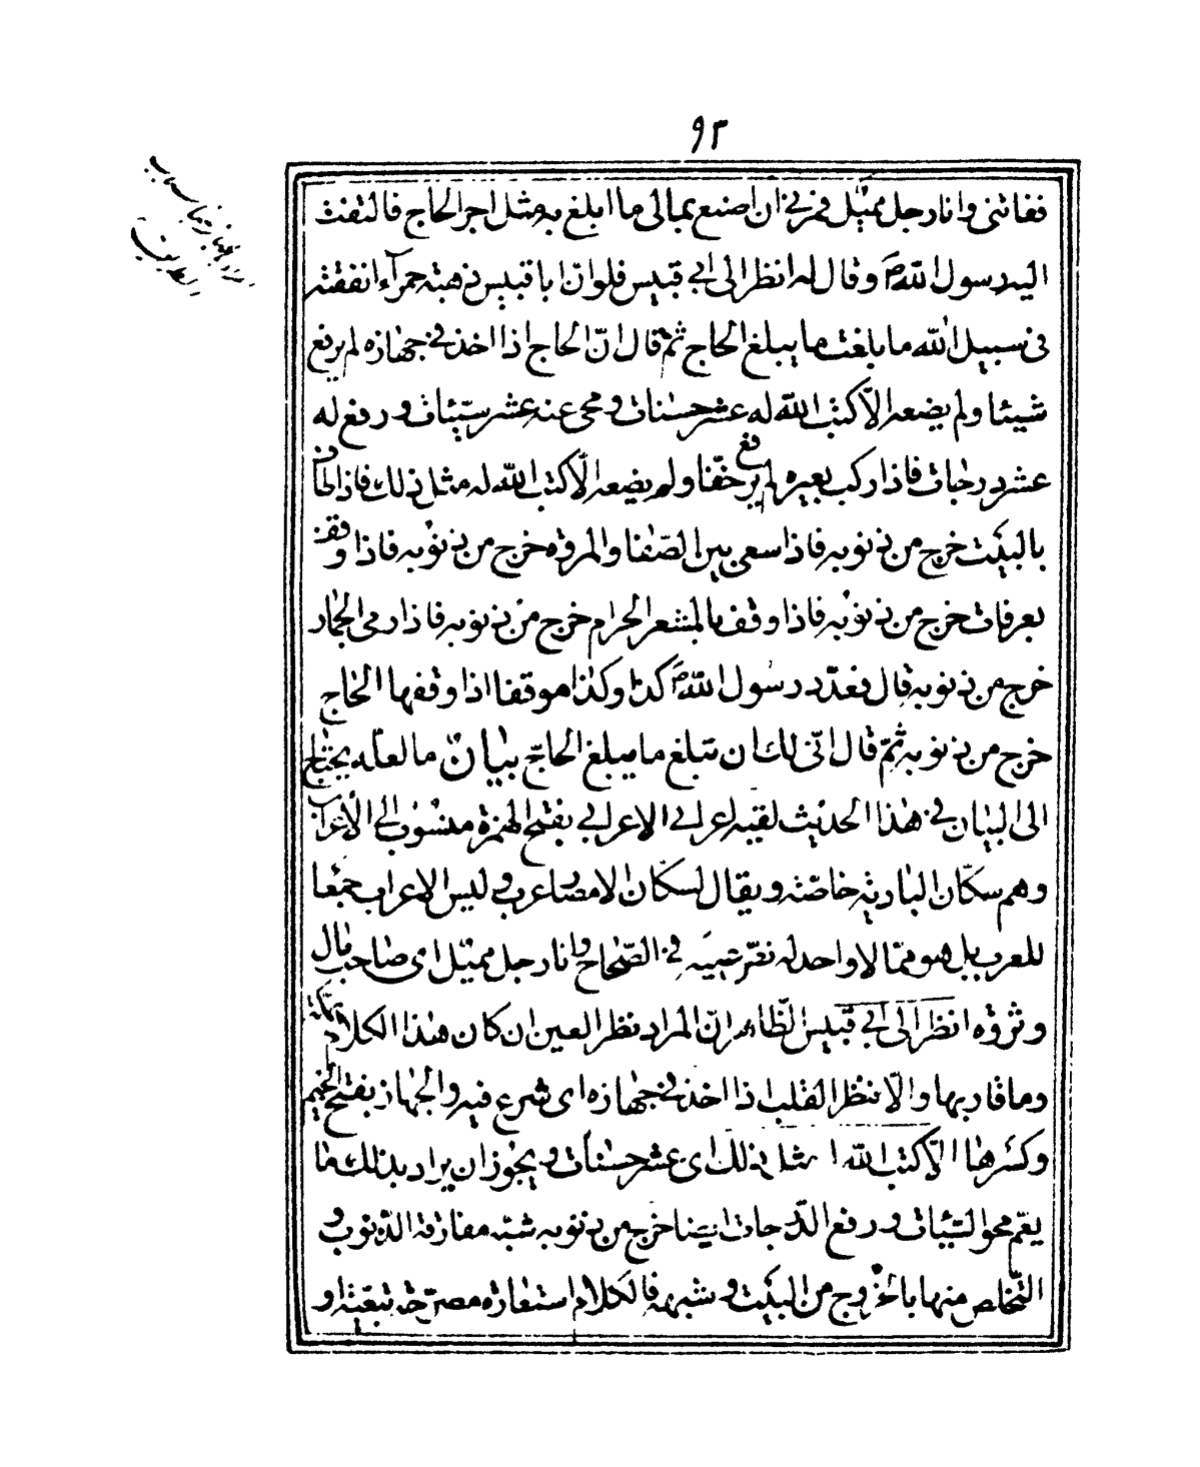 ٩٣
ففاتنى وانا رجل ممیّل فمرنى ان اصنع بمالى ما ابلغ به مثل اجر الحاج فالتفت
اليه رسول اللهؐ وقال له انظر الى ابى قبيس فلو انّ ابا قبيس ذهبة حمرآء انفقته
فى سبيل الله ما بلغت ما يبلغ الحاج ثم قال انّ الحاج اذا اخذ فى جهازه لم يرفع
شيئا ولم يضعه الاّ كتب الله له عشر حسنات ومحى عنه عشر سيّئات ورفع له
عشر درجات فاذا ركب بعيره لم يرفع خفّا ولم يضعه الاّ كتب الله له مثل ذلك فاذا طاف
بالبيت خرج من ذنوبه فاذا سعى بين الصّفا والمروة خرج من ذنوبه فاذا وقف
بعرفات خرج من ذنوبه فاذا وقف بالمشعر الحرام خرج من ذنوبه فاذا رمى الجمار
خرج من ذنوبه قال فعدّد رسول اللهؐ كذا وكذا موقفا اذا وقفها الحاج
خرج من ذنوبه ثمّ قال انّى لك ان تبلغ ما يبلغ الحاجّ بيان ما لعله يحتاج
الى البيان فى هذا الحديث لقيه اعرابى الاعرابى بفتح الهمزة منسوب الى الاعراب
وهم سكّان البادية خاصّة ويقال لسكان الامصار عرب وليس الاعراب جمعا
للعرب بل هو ممّا لا واحد له نصّ عليه فى الصّحاح وانا رجل ممیّل اى صاحب مال
وثروة انظر الى ابى قبيس الظّاهر انّ المراد نظر العين ان كان هذا الكلام بمكّة
وما قاربها والاّ نظر القلب اذا اخذ فى جهازه اى شرع فيه والجهاز بفتح الجيم
وكسرها الاّ كتب الله له مثل ذلك اى عشر حسنات ويجوز ان يراد بذلك ما
يعمّ محو السّيّئات ورفع الدّرجات ايضا خرج من ذنوبه شبّه مفارقة الذّنوب و
التّخلص منها بالخروج من البيت وشبهه فالكلام استعارة مصرّحة تبعيّة او